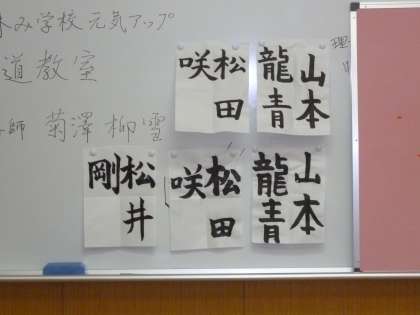 み学校 元気アップ
道教室
師 菊澤 柳雪
理
山本
龍青
松田
咲
山本
龍青
松田
咲
松井
剛